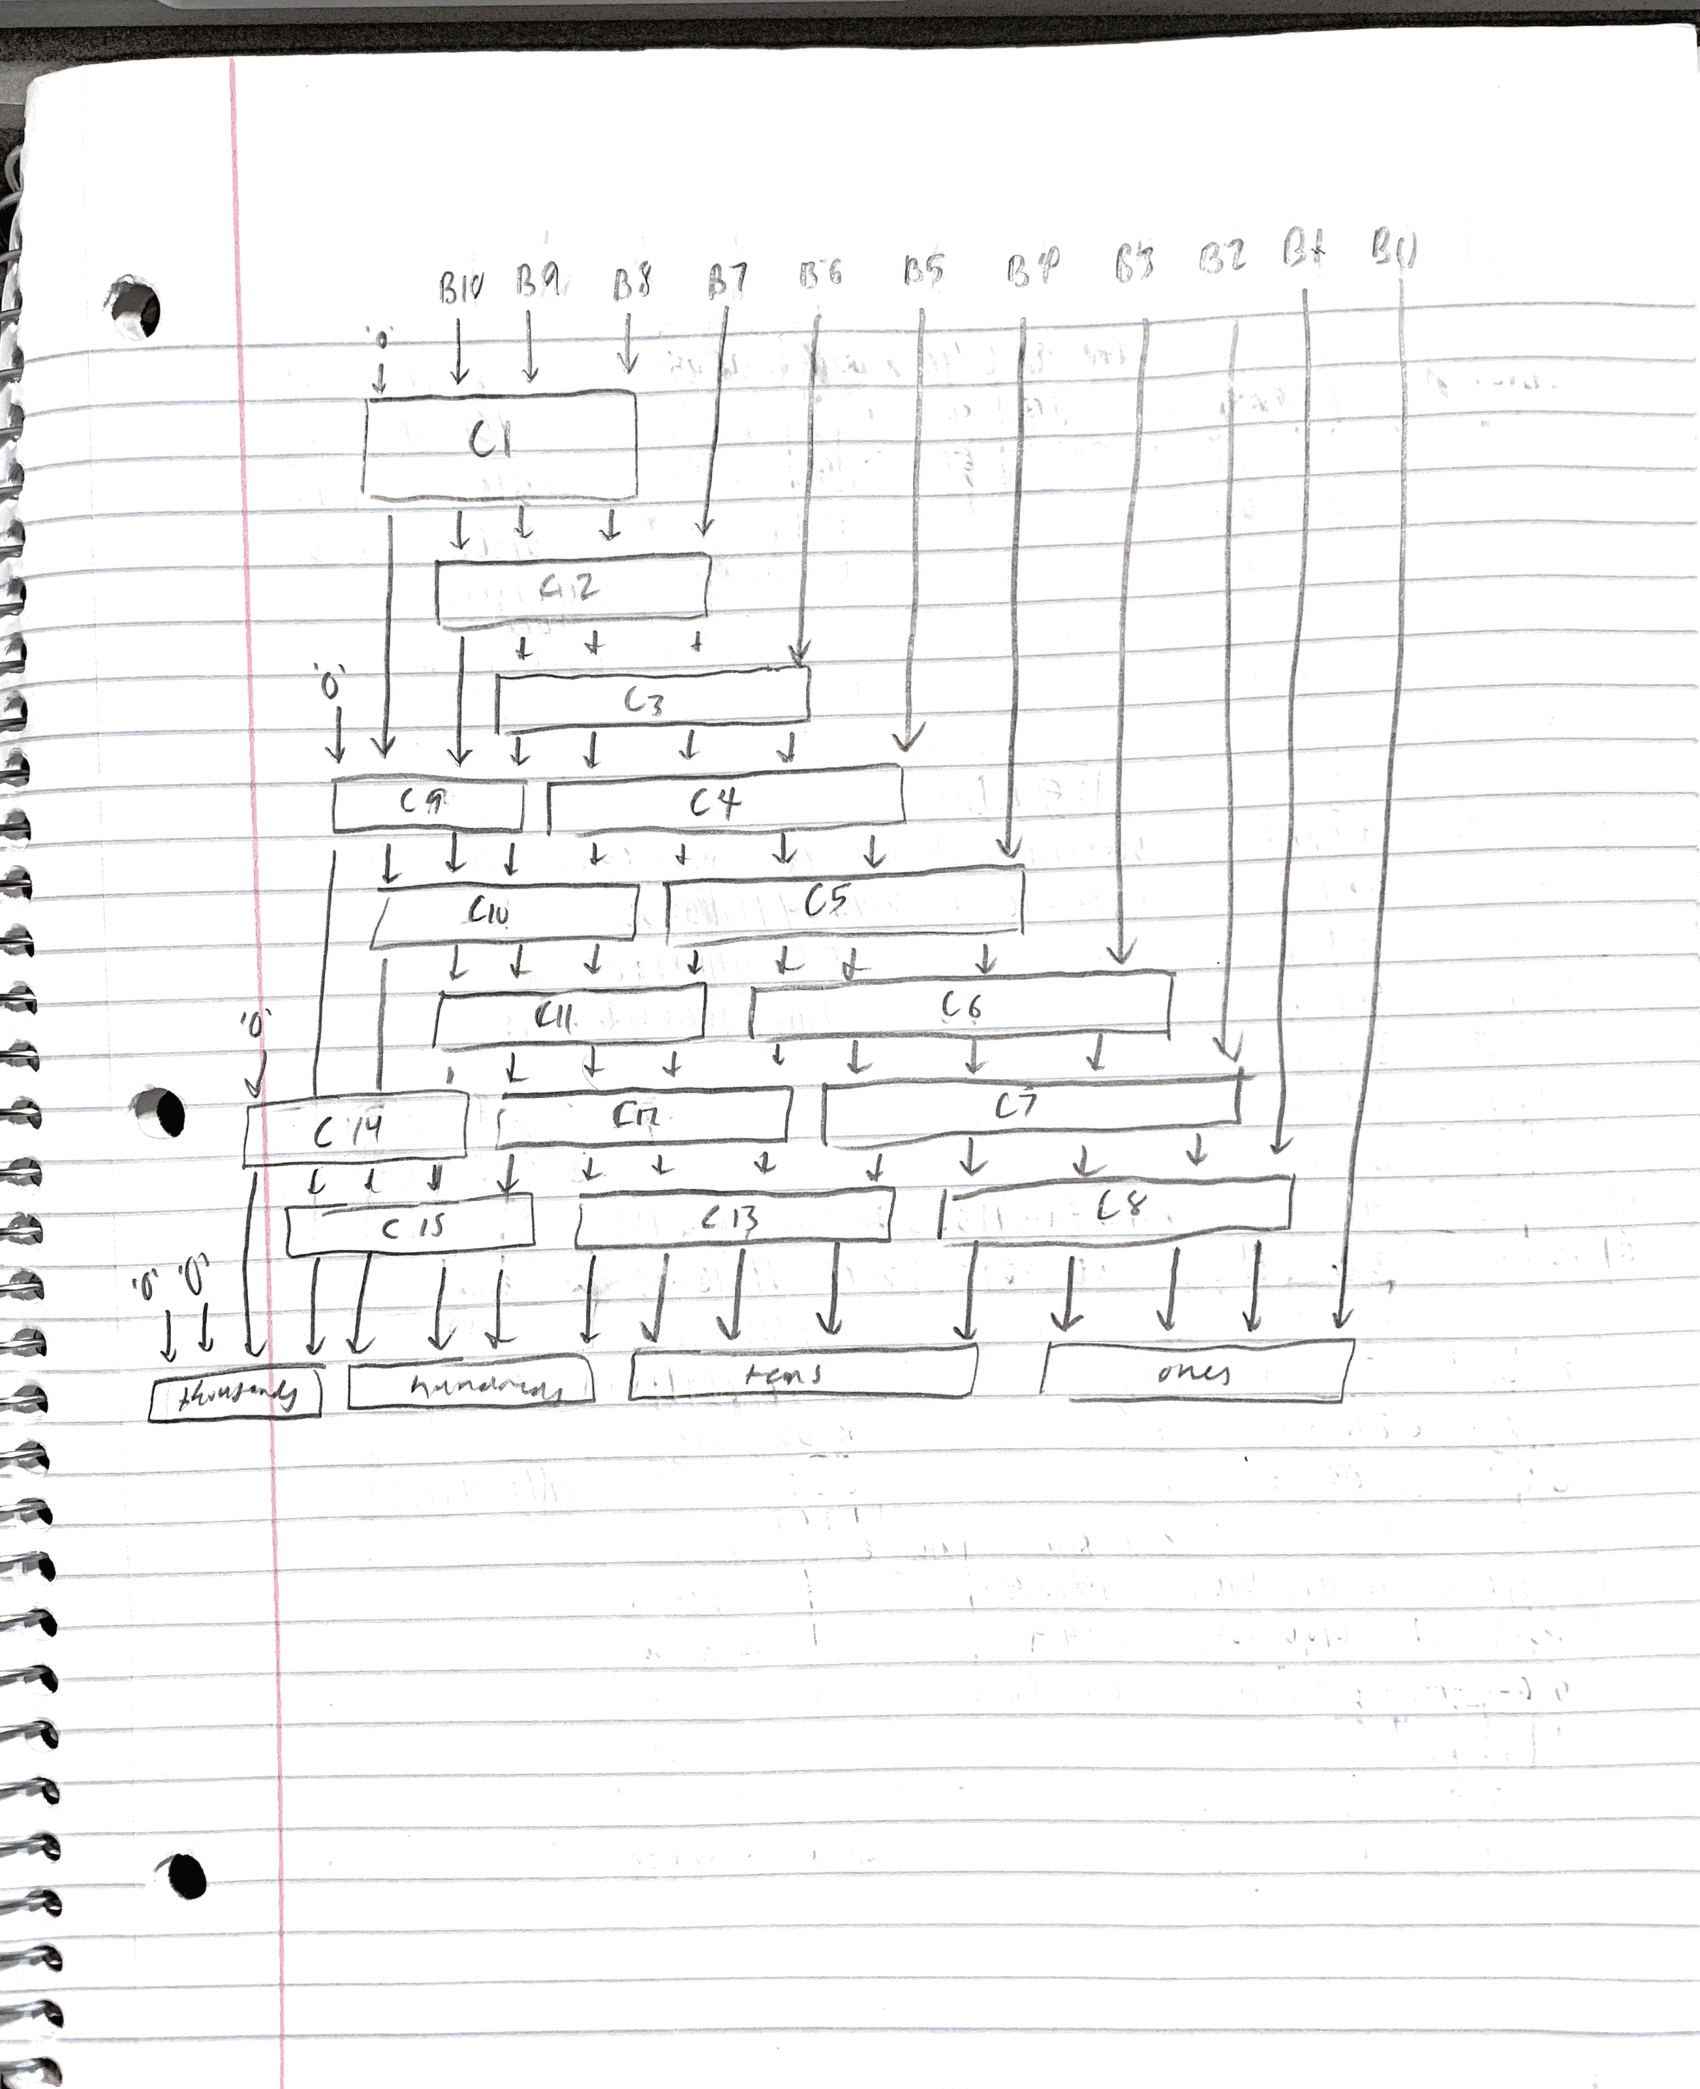 B10 B9 B8 B7 B6 B5 B4 B3 B2 B1 B0
'0'
C1
C2
'0'
C3
C9 C4
C10 C5
'0'
C11 C6
C14 C12 C7
C15 C13 C8
'0' '0'
thousands hundreds tens ones